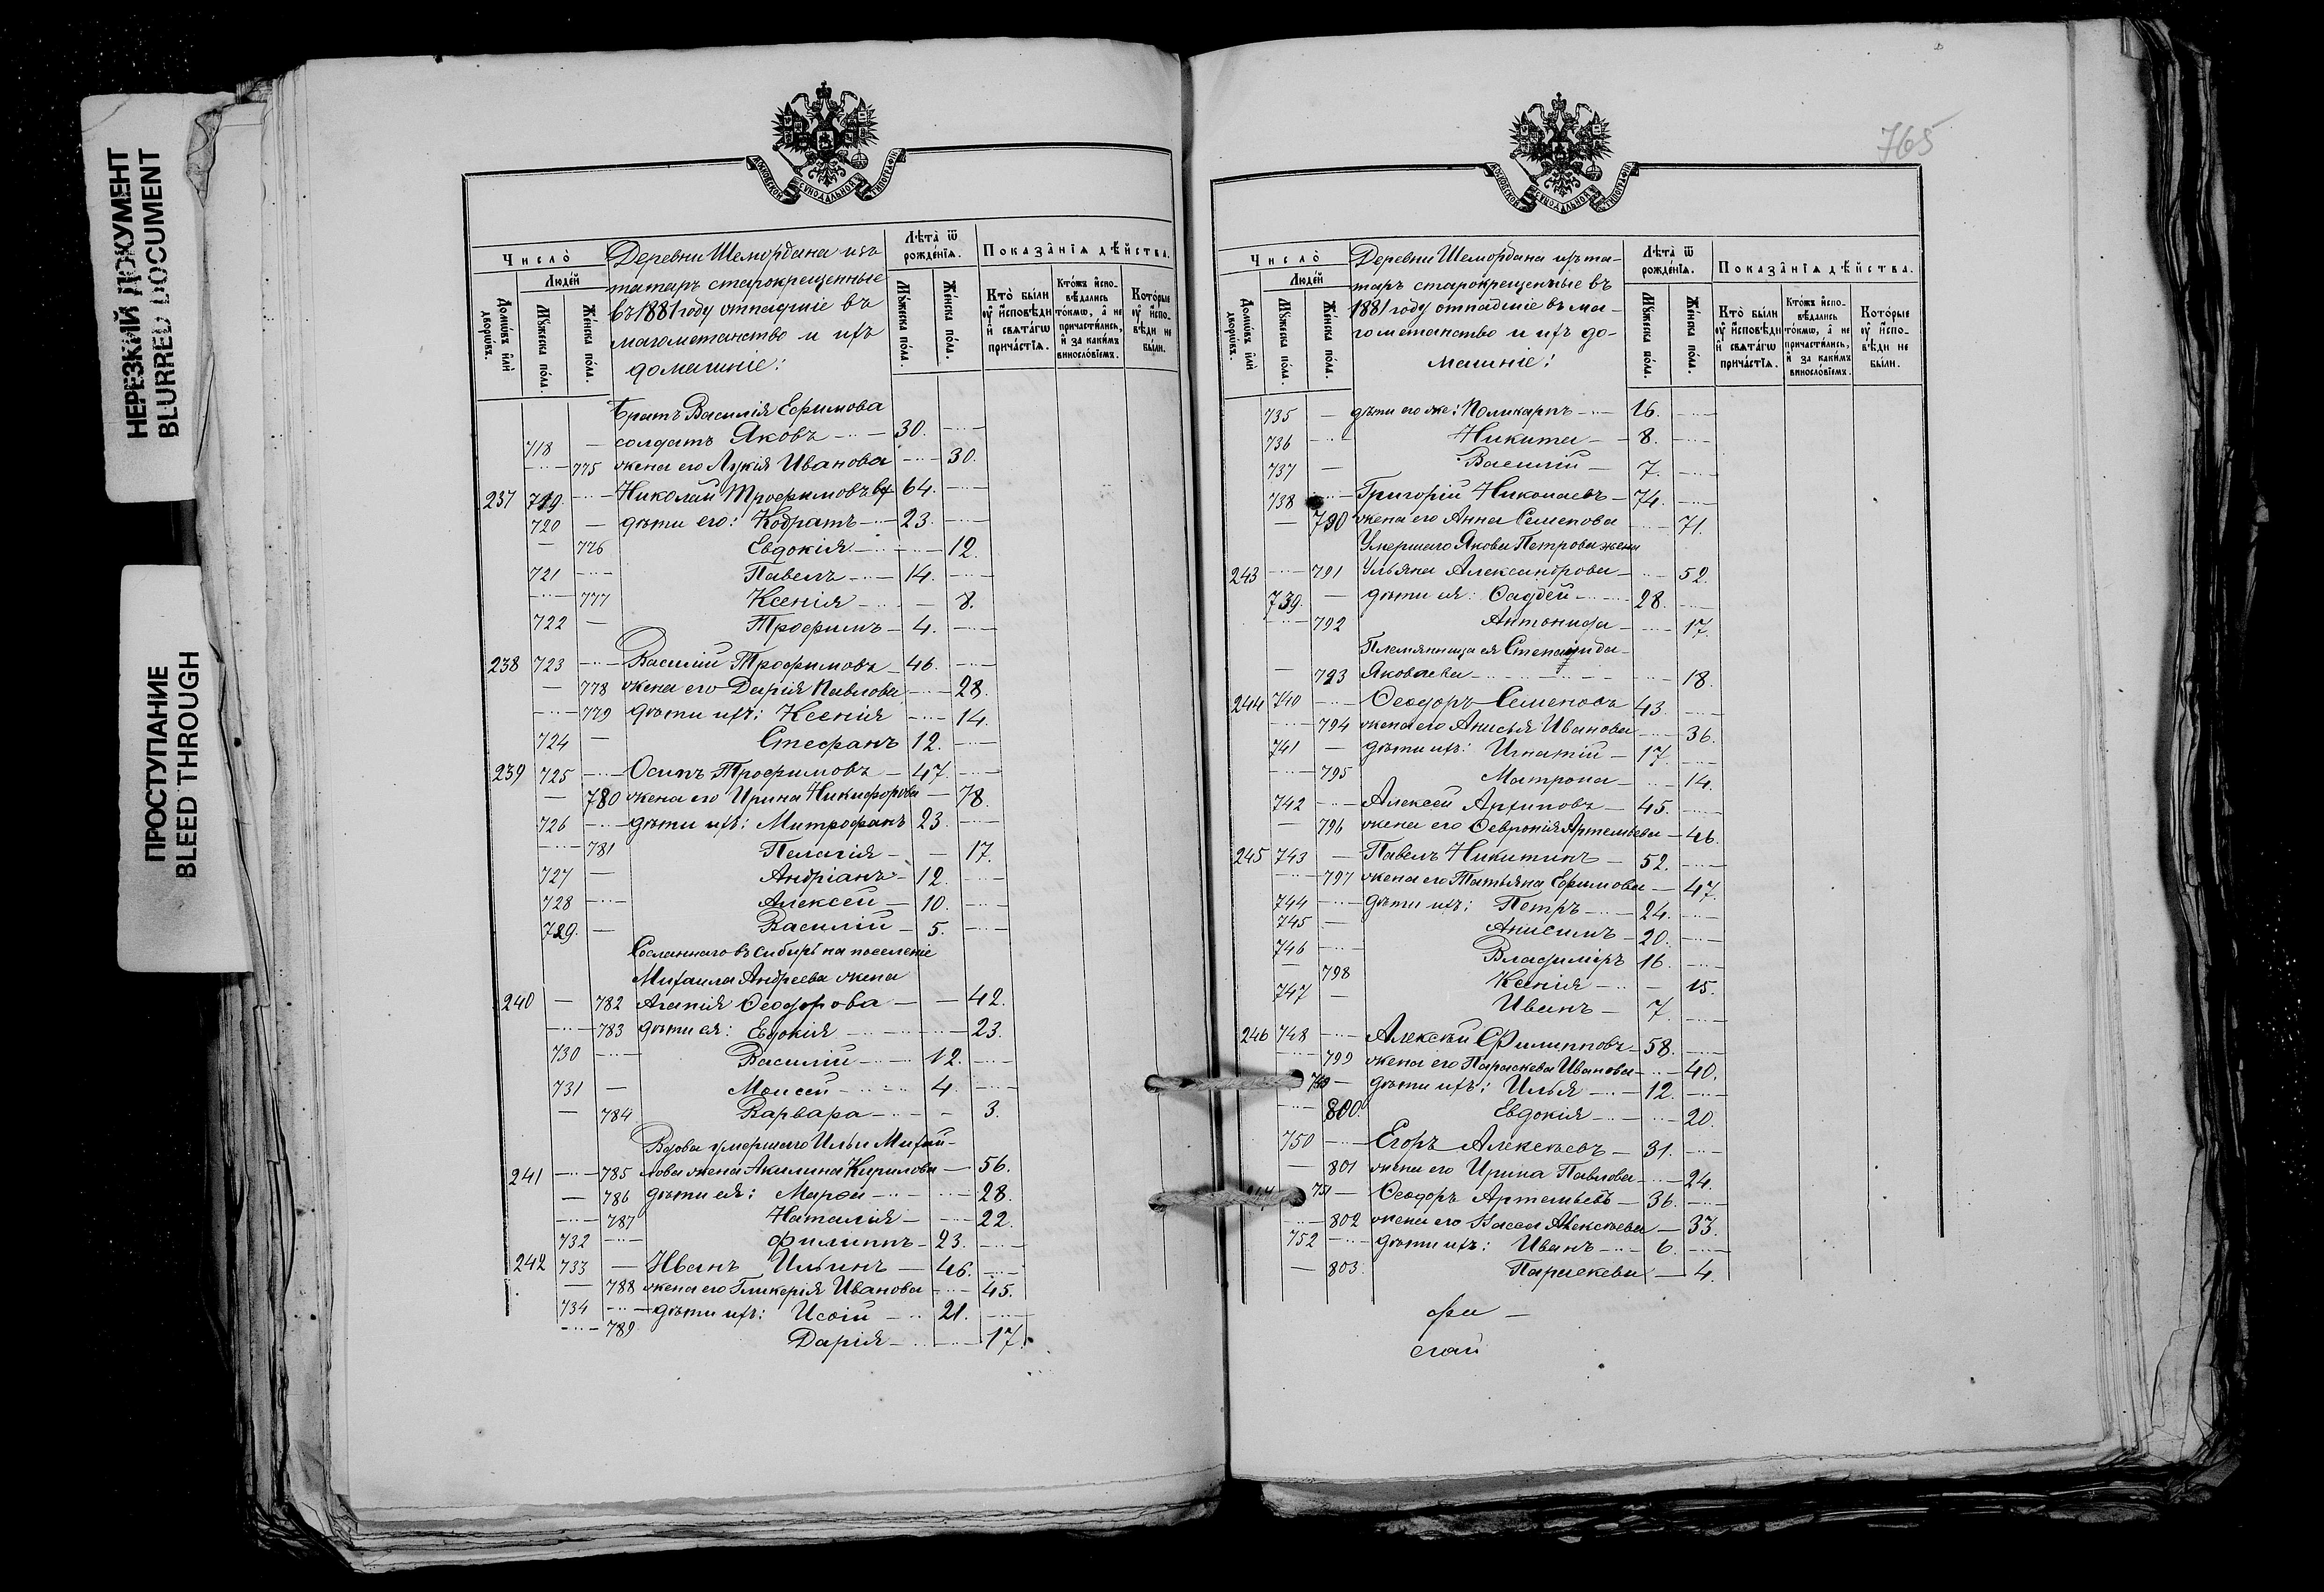 НЕРЕЗКИЙ ДОКУМЕНТ
BLURRED DOCUMENT
ПРОСТУПАНИЕ
BLEED THROUGH
МОСКОВСКОЙ СѴНОДАЛЬНОЙ ТИПОГРАФІИ
Число̀
Людей
Домѡвъ или дворѡвъ.
Мꙋжеска пола.
Женска пола.
Деревни Шемордана изъ
татаръ старокрещенные
въ 1881 году отпадшіе въ
магометанство и ихъ
домашніе:
Лѣта ѿ рожденїѧ.
Мꙋжеска пола.
Женска пола.
Показанїѧ дѣйства.
Кто были ᲂу исповѣди и свѧтагѡ причастїѧ.
Ктожъ исповѣдались токмѡ, а не причастились, и за какимъ винословїемъ.
Которые ᲂу исповѣди не были.
Братъ Василія Ефимова
718 — солдатъ Яковъ — 30.
775 жена его Лукія Иванова — 30.
237 719. Николай Трофимовъ вд 64.
720 — дѣти его: Кодратъ — 23.
776 Евдокія — 12.
721 Павелъ — 14.
777 Ксенія — 8.
722 — Трофимъ — 4.
238 723 Василій Трофимовъ — 46.
778 жена его Дарія Павлова — 28.
779 дѣти ихъ: Ксенія — 14.
724 — Стефанъ 12.
239 725 Осипъ Трофимовъ — 47.
780 жена его Ирина Никифорова — 78.
726 дѣти ихъ: Митрофанъ 23.
781 Пелагія — 17.
727 — Андріанъ — 12.
728 Алексей — 10.
729. — Василій — 5.
Сосланнаго въ Сибирь на поселеніе
Михаила Андреева жена
240 — 782 Агапія Ѳеодорова — 42.
783 дѣти ея: Евдокія — 23.
730 Василій — 12.
731 — Моисей — 4.
784 Варвара — 3.
Вдова умершаго Ильи Михай-
241 785 лова жена Акилина Кирилова — 56.
786 дѣти ея: Марѳа — 28.
787 Наталія — 22.
732 Филиппъ — 23.
242 733 — Иванъ Ильинъ — 46.
788 жена его Гликерія Иванова — 45.
734 дѣти ихъ: — 21.
789 Дарія — 17.
765
МОСКОВСКОЙ СѴНОДАЛЬНОЙ ТИПОГРАФІИ
Число̀
Людей
Домѡвъ или дворѡвъ.
Мꙋжеска пола.
Женска пола.
Деревни Шемордана изъ та-
таръ старокрещенные въ
1881 году отпадшіе въ ма-
гометанство и ихъ до-
машніе:
Лѣта ѿ рожденїѧ.
Мꙋжеска пола.
Женска пола.
Показанїѧ дѣйства.
Кто были ᲂу исповѣди и свѧтагѡ причастїѧ.
Ктожъ исповѣдались токмѡ, а не причастились, и за какимъ винословїемъ.
Которые ᲂу исповѣди не были.
735 — дѣти его же: Поликарпъ — 16.
736 Никита — 8.
737 — Василій — 7.
738 Григорій Николаевъ — 74.
— 790 жена его Анна Семенова — 71.
Умершаго Якова Петрова жена
243 791 Ульяна Александрова — 52.
739. — дѣти ея: Ѳаддей — 28.
792 Антонида — 17.
Племянница ея Степанида
— 793 Яковлева — 18.
244 740 Ѳеодоръ Семеновъ 43.
794 жена его Анисья Иванова — 36.
741 — дѣти ихъ: Игнатій — 17.
795 Матрона — 14.
742 Алексей Архиповъ — 45.
— 796 жена его Ѳевронія Артемьева — 46.
245 743 — Павелъ Никитинъ — 52.
797 жена его Татьяна Ефимова — 47.
744 дѣти ихъ: Петръ — 24.
745 — Анисимъ — 20.
746 Владиміръ 16.
— 798 Ксенія — 15.
747 — Иванъ — 7.
246 748 Алексѣй Филипповъ — 58.
799 жена его Параскева Иванова — 40.
749 — дѣти ихъ: Илья — 12.
800. Евдокія — 20.
750 Егоръ Алексѣевъ — 31.
— 801 жена его Ирина Павлова — 24.
247 751 — Ѳеодоръ Артемьевъ — 36.
802 жена его Васса Алексѣева — 33.
752 дѣти ихъ: Иванъ — 6.
— 803. Параскева — 4.